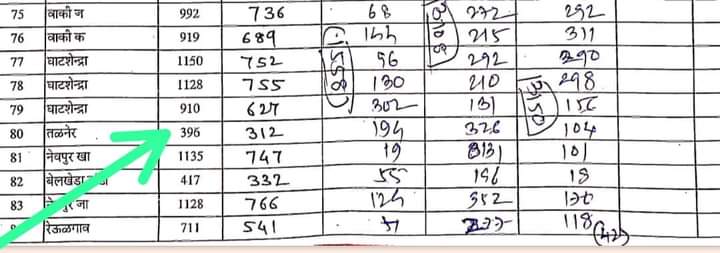 75 वाकी ज 992 736 68 272 292
76 वाकी क 919 689 144 215 311
77 घाटशेन्द्रा 1150 752 56 292 390
78 घाटशेन्द्रा 1128 755 130 210 298
79 घाटशेन्द्रा 910 627 302 131 156
80 तळनेर 396 312 194 326 104
81 नेवपुर खा 1135 747 19 101
82 बेलखेडा 417 332 55 196 18
83 जा 1128 766 124 352
रेऊळगाव 711 541 118
(42)